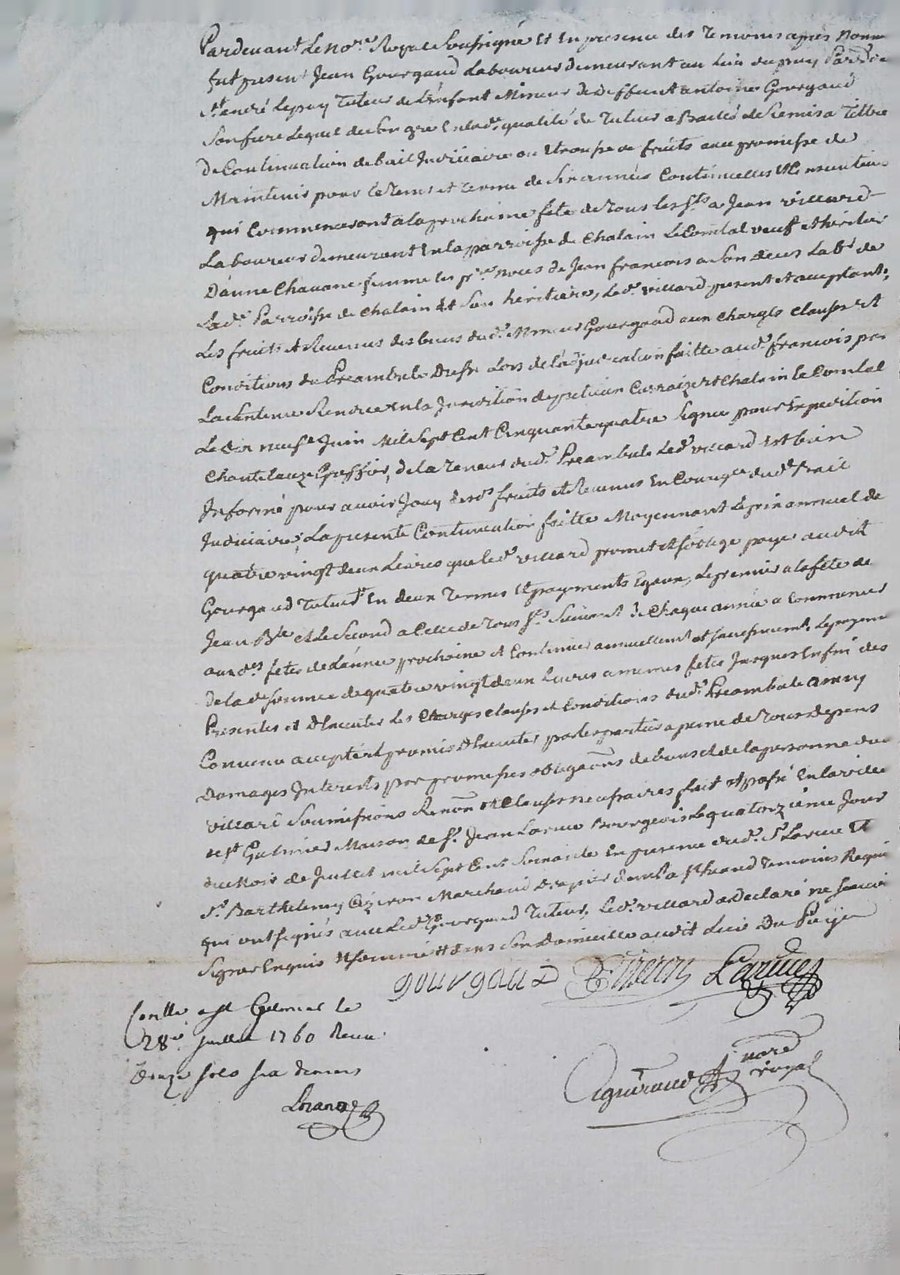 Pardevant Le no.re Royal Soussigné Et En presence des Temoins apres nom
fut present Jean Gourgaud Laboureur demeurant au Lieu du puy Par
St. andré Lepuy Tuteur de L'enfant Mineur de deffunt antoine Gourgaud
Son frere Lequel de Son gré En lad. qualité de Tuteur a Baillé de Remis a Tittre
De Continuation de bail Judiciaire ou de fruits
pour le tems et terme de Six années Continuelles Et Consecutives
qui Commenceront a la prochaine fête de Tous les Sts a Jean villard
Laboureur demeurant En la parroisse de Chalain Le Comtal veuf et heritier
Danne Chavane femme En p.res noces de Jean francois a Son deces Lab.r de
Lad. Parroisse de Chalain Et Son heritiere, Led. villard present et acceptant
Les fruits et Revenus des biens dud. Mineur Gourgaud aux Charges Clauses Et
Conditions du Preambule Dressé Lors de L'adjudication faitte aud. francois par
La Sentence Rendue En la Jurisdition de Chalain le Comtal
Le Dix neuf Juin Mil Sept Cent Cinquante quatre Signée pour Expedition
Chantelauze Greffier, de la Teneur dud. Preambule Led. villard Est bien
Informé pour avoir Jouy desd. fruits et Revenus En dud. Bail
Judiciaire, La presente Continuation faitte Moyennant Le prix annuel de
quatre vingt deux Livres que led. villard promet et s'oblige payer audit
Gourgaud Tuteur En deux Termes Et payements Egaux, Le premier a la fête de
Jean B.te et Le Second a Celle de Tous Sts Suivant de Chaque année a Commencer
auxd. fêtes de L'année prochaine et Continuer annuellement et Le payement
de la d. Somme de quatre vingt deux Livres a memes fêtes Jusques En fin des
Presentes et d'Executer Les Charges Clauses et Conditions dud. Preambule
Convenu accepté et promis Executer par les parties a peine de Tous depens
Domages Interests par promesses obligaons de biens et de la personne dud.
villard Soumissions Renon. et Clauses necessaires fait et passé En la ville
de St. Galmier Maison de Sr. Jean Larue Bourgeois Le quatorzieme Jour
du Mois de Juillet mil Sept Cent Soixante En presence dud. Sr. Larue Et
Sr. Barthelemy Marchand Drapier dud. St. Temoins Requis
qui ont Signés avec Led. Gourgaud Tuteur, Led. villard a Declaré ne Scavoir
Signer Enquis Et Sommé dans Son Domicille audit Lieu Du
gourgaud Larue
Conllé a St. Galmier le
28e juillet 1760 Recu
Douze sols six deniers
no.re
royal